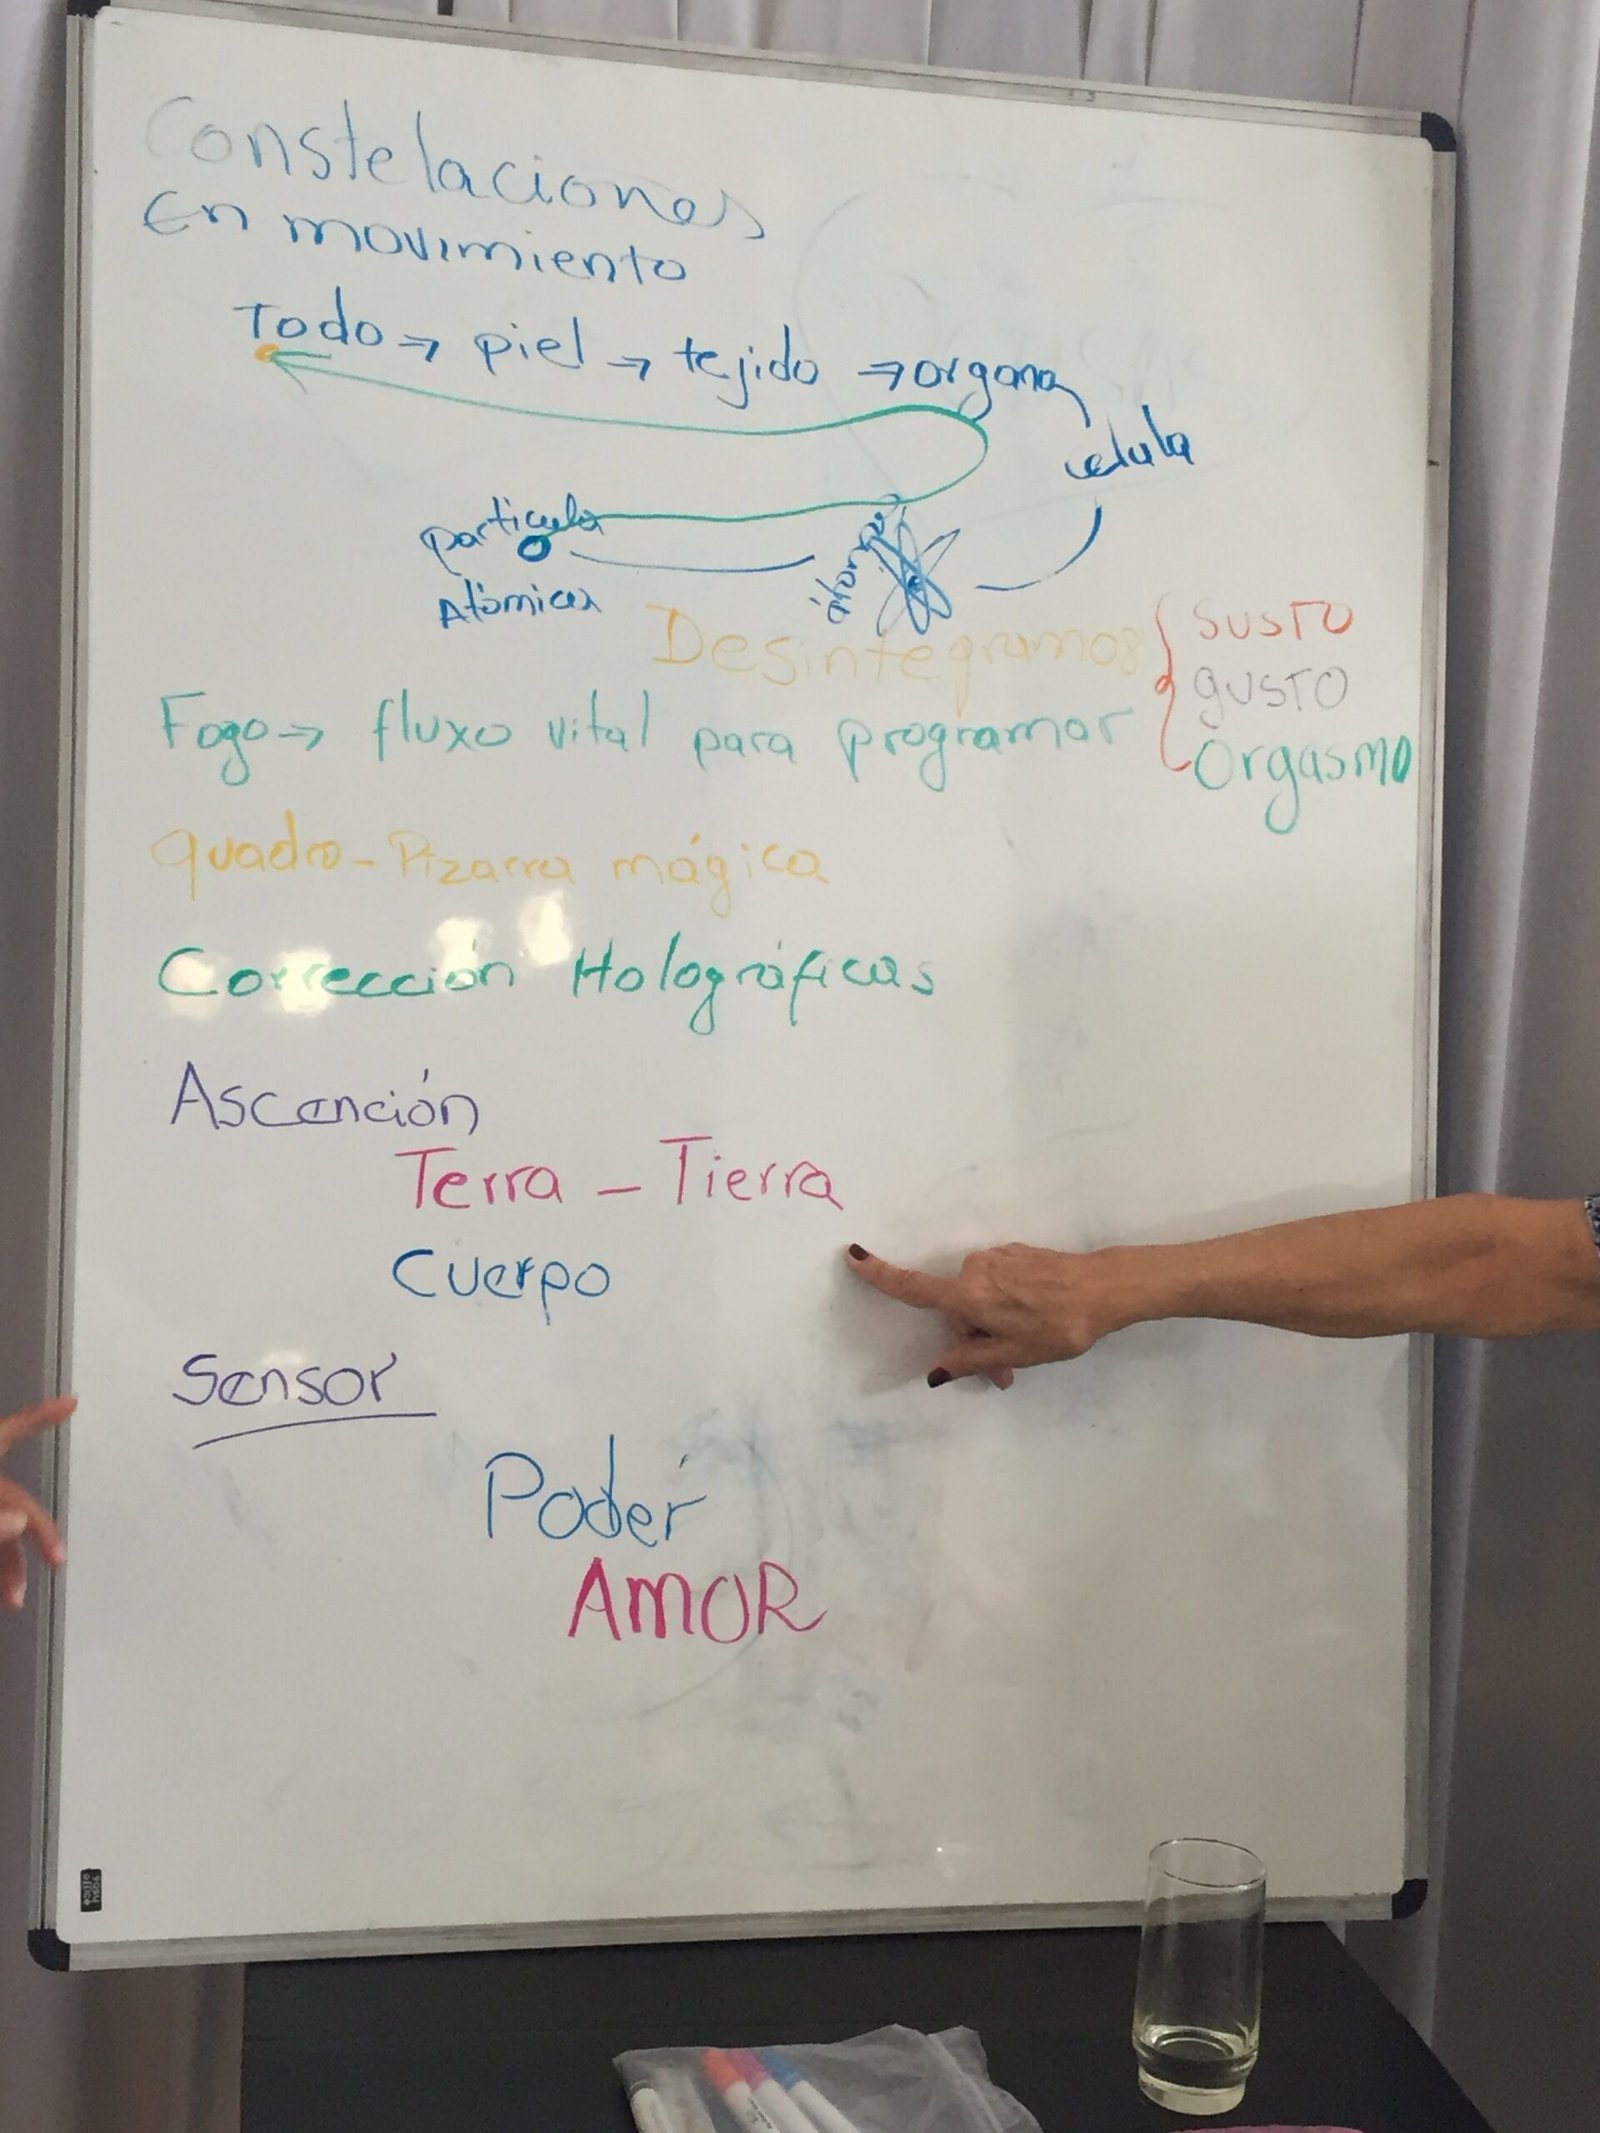 Constelaciones
En movimiento
Todo → piel → tejido → organo
celula
particula
Atómica
átomo
Desintegramos { SUSTO
gUSTO
Orgasmo
Fogo → fluxo vital para programar
quadro - Pizarra mágica
Corrección Holográficas
Ascención
Terra - Tierra
Cuerpo
Sensor
Poder
AMOR